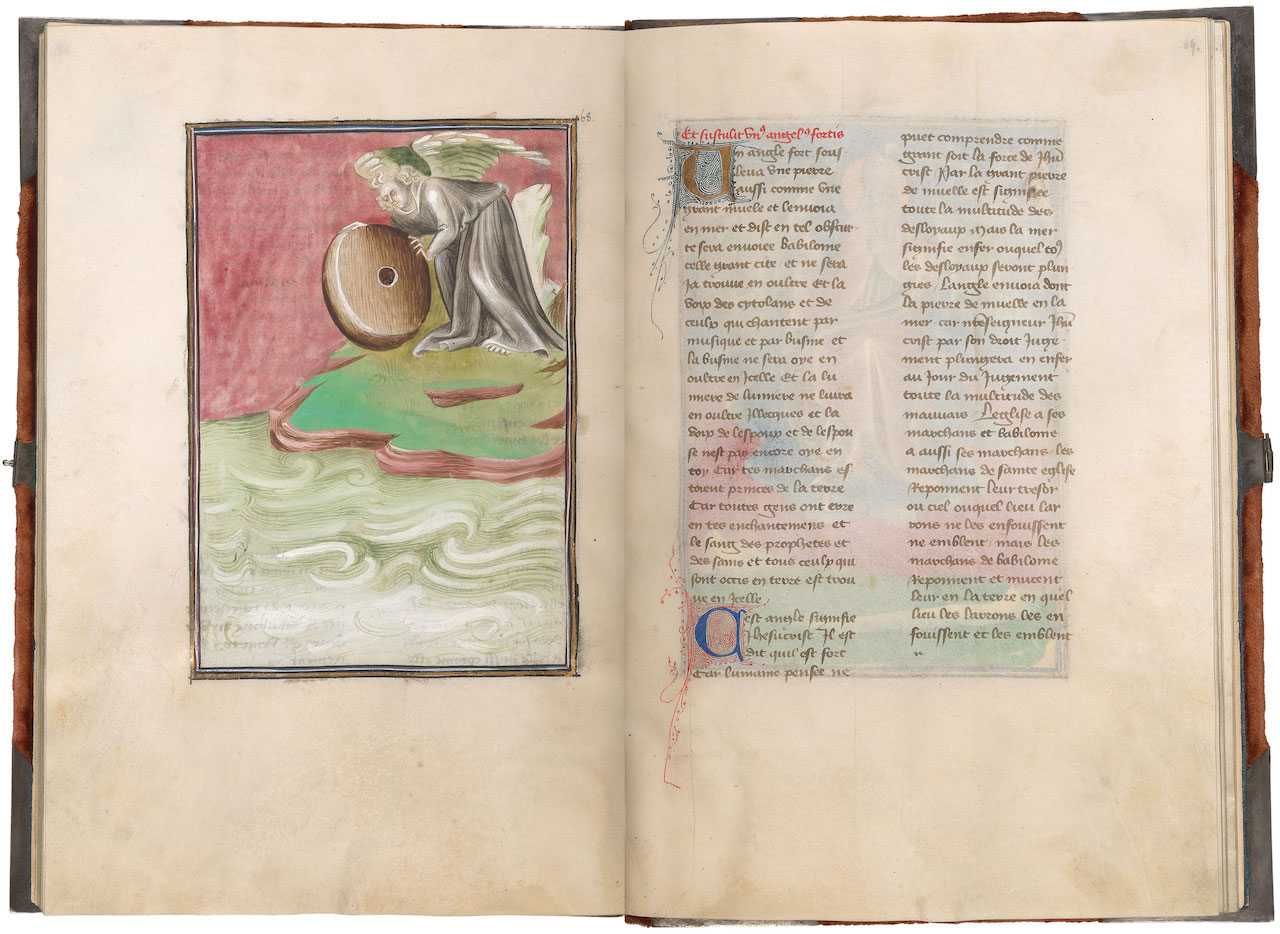 68.
69.
Et sustulit vn9 angel9 fortis
Un angle fort sous
leua vne pierre
aussi comme vne
grant muele et lenuoia
en mer et dist en tel obscur
te sera enuoiee babilome
celle grant cite et ne sera
Ja trouue en oultre Et la
voix des cytolans et de
ceulx qui chantent par
musique et par busine et
la busine ne sera oye en
oultre en Icelle Et la lu
miere de lumiere ne luira
en oultre Illecques et la
voix de lespoux et de lespou
se nest pas encore oye en
toy Car tes marchans es
toient princes de la terre
Car toutes gens ont erre
en tes enchantemens et
le sang des prophetes et
des sains et tous ceulx qui
sont occis en terre est trou
ue en Icelle
Cest angle signifie
Jhesucrist Il est
dit quil est fort
Car lumaine pensee ne
puet comprendre comme
grant soit la force de Jhu
crist Par la grant pierre
de muelle est signifiee
toute la multitude des
desloyaux Mais la mer
signifie enfer ouquel to9
les desloyaux seront plun
gies Langle enuoia dont
la pierre de muelle en la
mer car nreseigneur Jhu
crist par son droit Juge
ment plungera en enfer
au Jour du Jugement
toute la multitude des
mauuais Leglise a ses
marchans et babilome
a aussi ses marchans les
marchans de sainte eglise
Reponnent leur tresor
ou ciel ouquel lieu lar
rons ne les enfouissent
ne emblent mais les
marchans de babilome
Reponnent et mucent
leur en la terre en quel
lieu les larrons les en
fouissent et les emblent